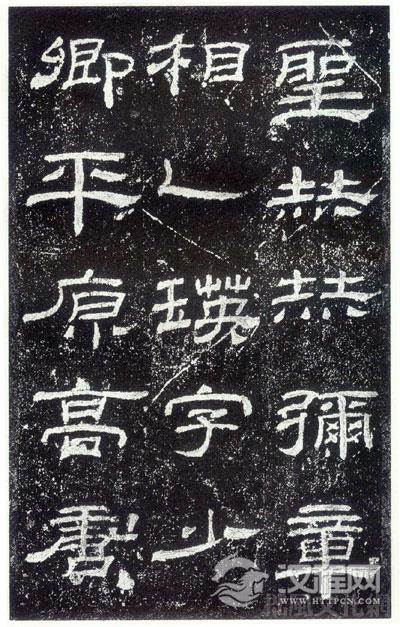 聖赫赫彌章
相乙瑛字少
卿平原髙唐
汉程网
WWW.HTTPCN.COM